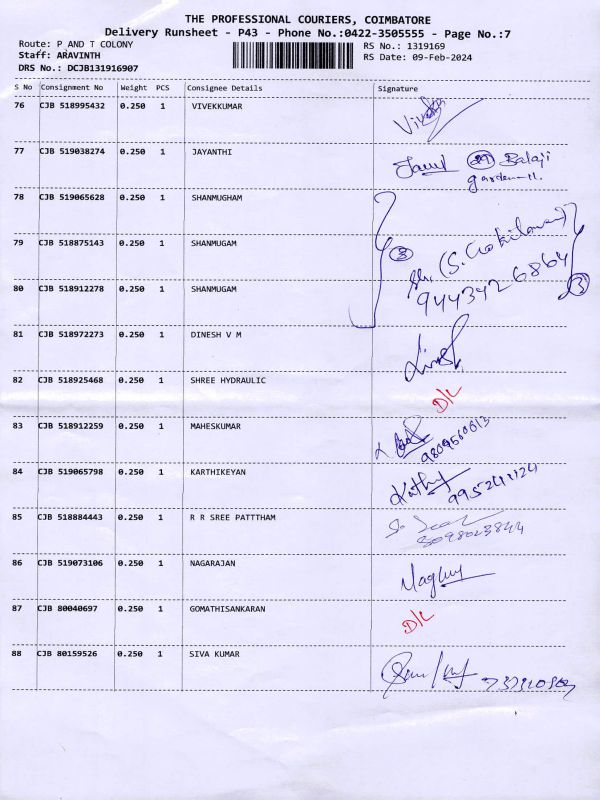 THE PROFESSIONAL COURIERS, COIMBATORE
Delivery Runsheet - P43 - Phone No.:0422-3505555 - Page No.:7
Route: P AND T COLONY RS No.: 1319169
Staff: ARAVINTH RS Date: 09-Feb-2024
DRS No.: DCJB131916907
S No Consignment No Weight PCS Consignee Details Signature
76 CJB 518995432 0.250 1 VIVEKKUMAR
77 CJB 519038274 0.250 1 JAYANTHI 29 Balaji
garden-11.
78 CJB 519065628 0.250 1 SHANMUGHAM
79 CJB 518875143 0.250 1 SHANMUGAM 3
80 CJB 518912278 0.250 1 SHANMUGAM 9443426864 3
81 CJB 518972273 0.250 1 DINESH V M
82 CJB 518925468 0.250 1 SHREE HYDRAULIC D/L
83 CJB 518912259 0.250 1 MAHESKUMAR
84 CJB 519065798 0.250 1 KARTHIKEYAN
85 CJB 518884443 0.250 1 R R SREE PATTTHAM
86 CJB 519073106 0.250 1 NAGARAJAN
87 CJB 80040697 0.250 1 GOMATHISANKARAN D/L
88 CJB 80159526 0.250 1 SIVA KUMAR